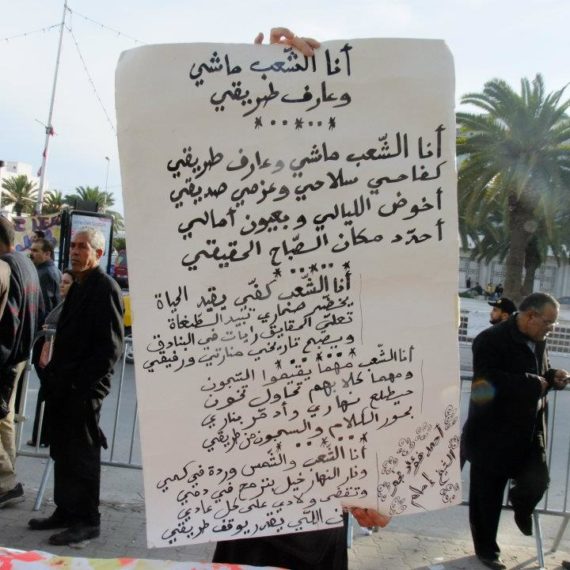 أنا الشّعب ماشي
وعارف طريقي
*..*..*..*
أنا الشّعب ماشي وعارف طريقي
كفاحي سلاحي وعزمي صديقي
أخوض الليالي وبعيون أمالي
أحدّد مكان الصّباح الحقيقي
أنا الشّعب كفّي يقيد الحياة
يخضّر صحاري يبيد الطّغاة
تعلّي الحقايق رايات في البنادق
ويصبح تاريخي منارتي ورفيقي
أنا الشّعب مهما يقيموا السّجون
ومهما كلابهم تحاول تخون
حيطلع نهاري وأدمّر بناري
بحور الكلام والسجون من طريقي
أنا الشّعب والشّمس وردة في كمي
ونار النهار خيل بترمح في دمي
وتقضي ولادي على كل عادي
اللّي يقدر يوقف طريقي
أحمد فؤاد نجم
الشيخ إمام